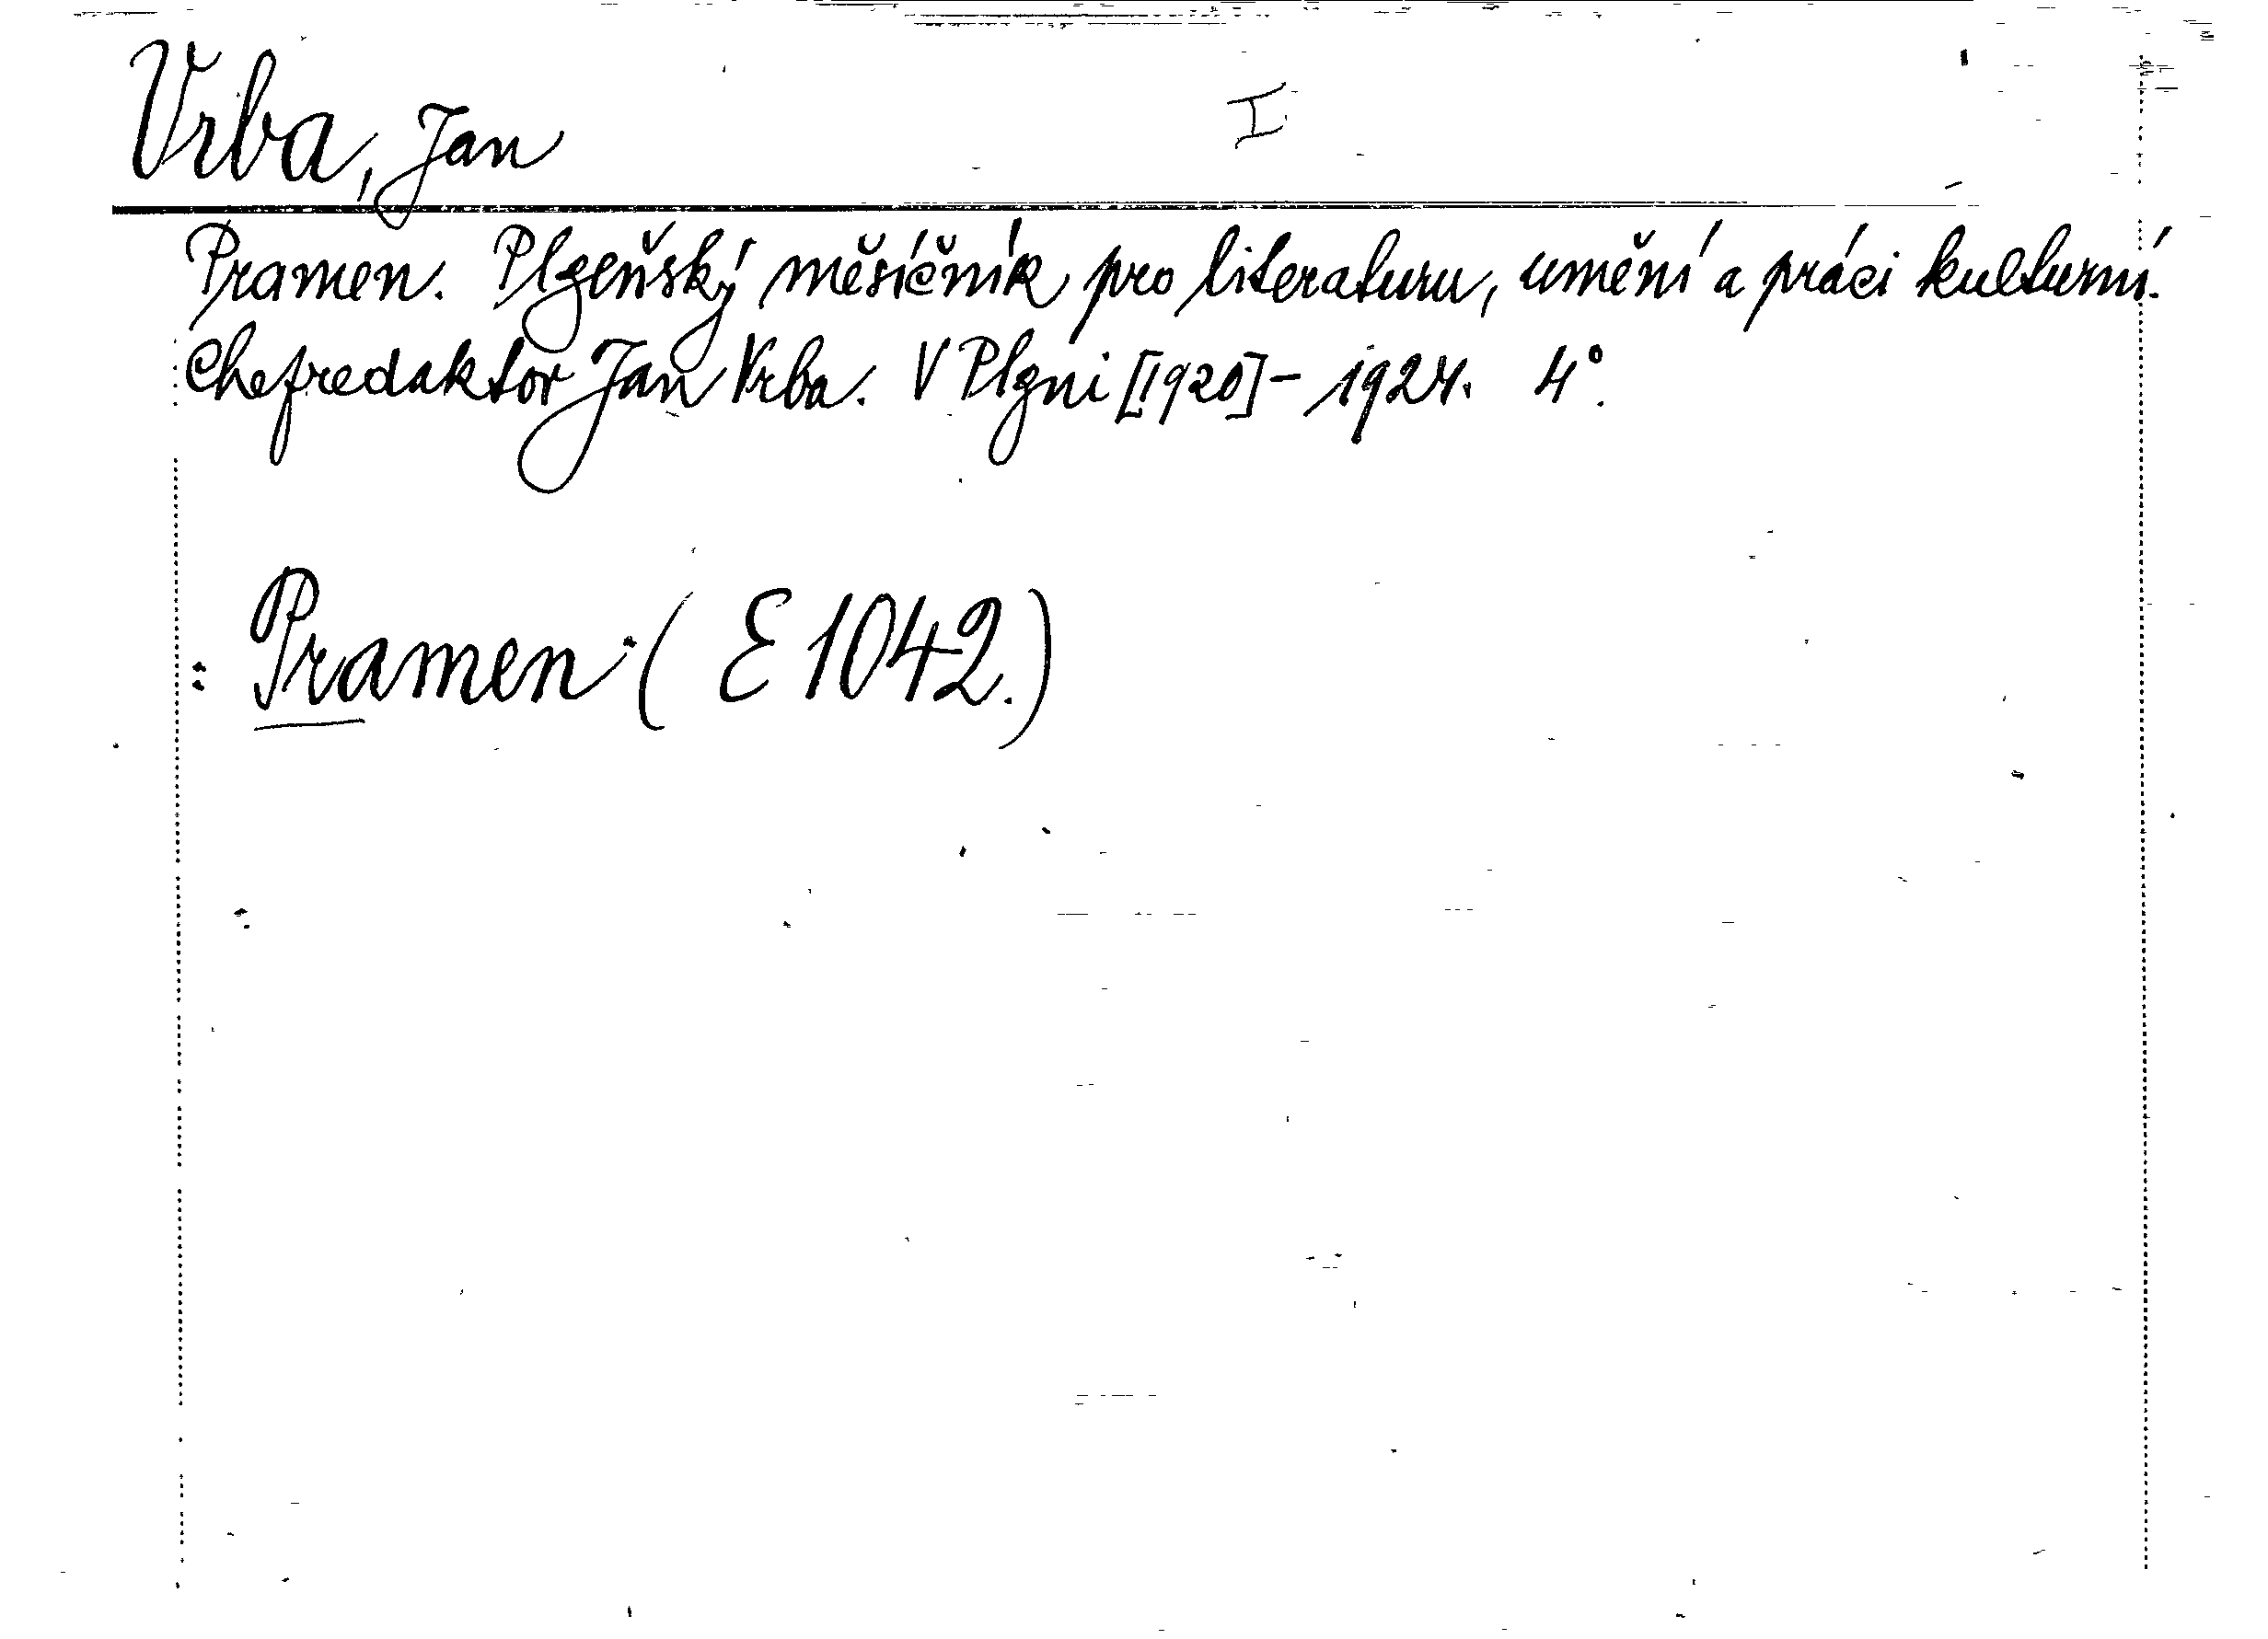 Vrba, Jan I
Pramen. Plzeňský měsíčník pro literaturu, umění a práci kulturní.
Chefredaktor Jan Vrba. V Plzni [1920] - 1924. 4°.
: Pramen. (E 1042.)